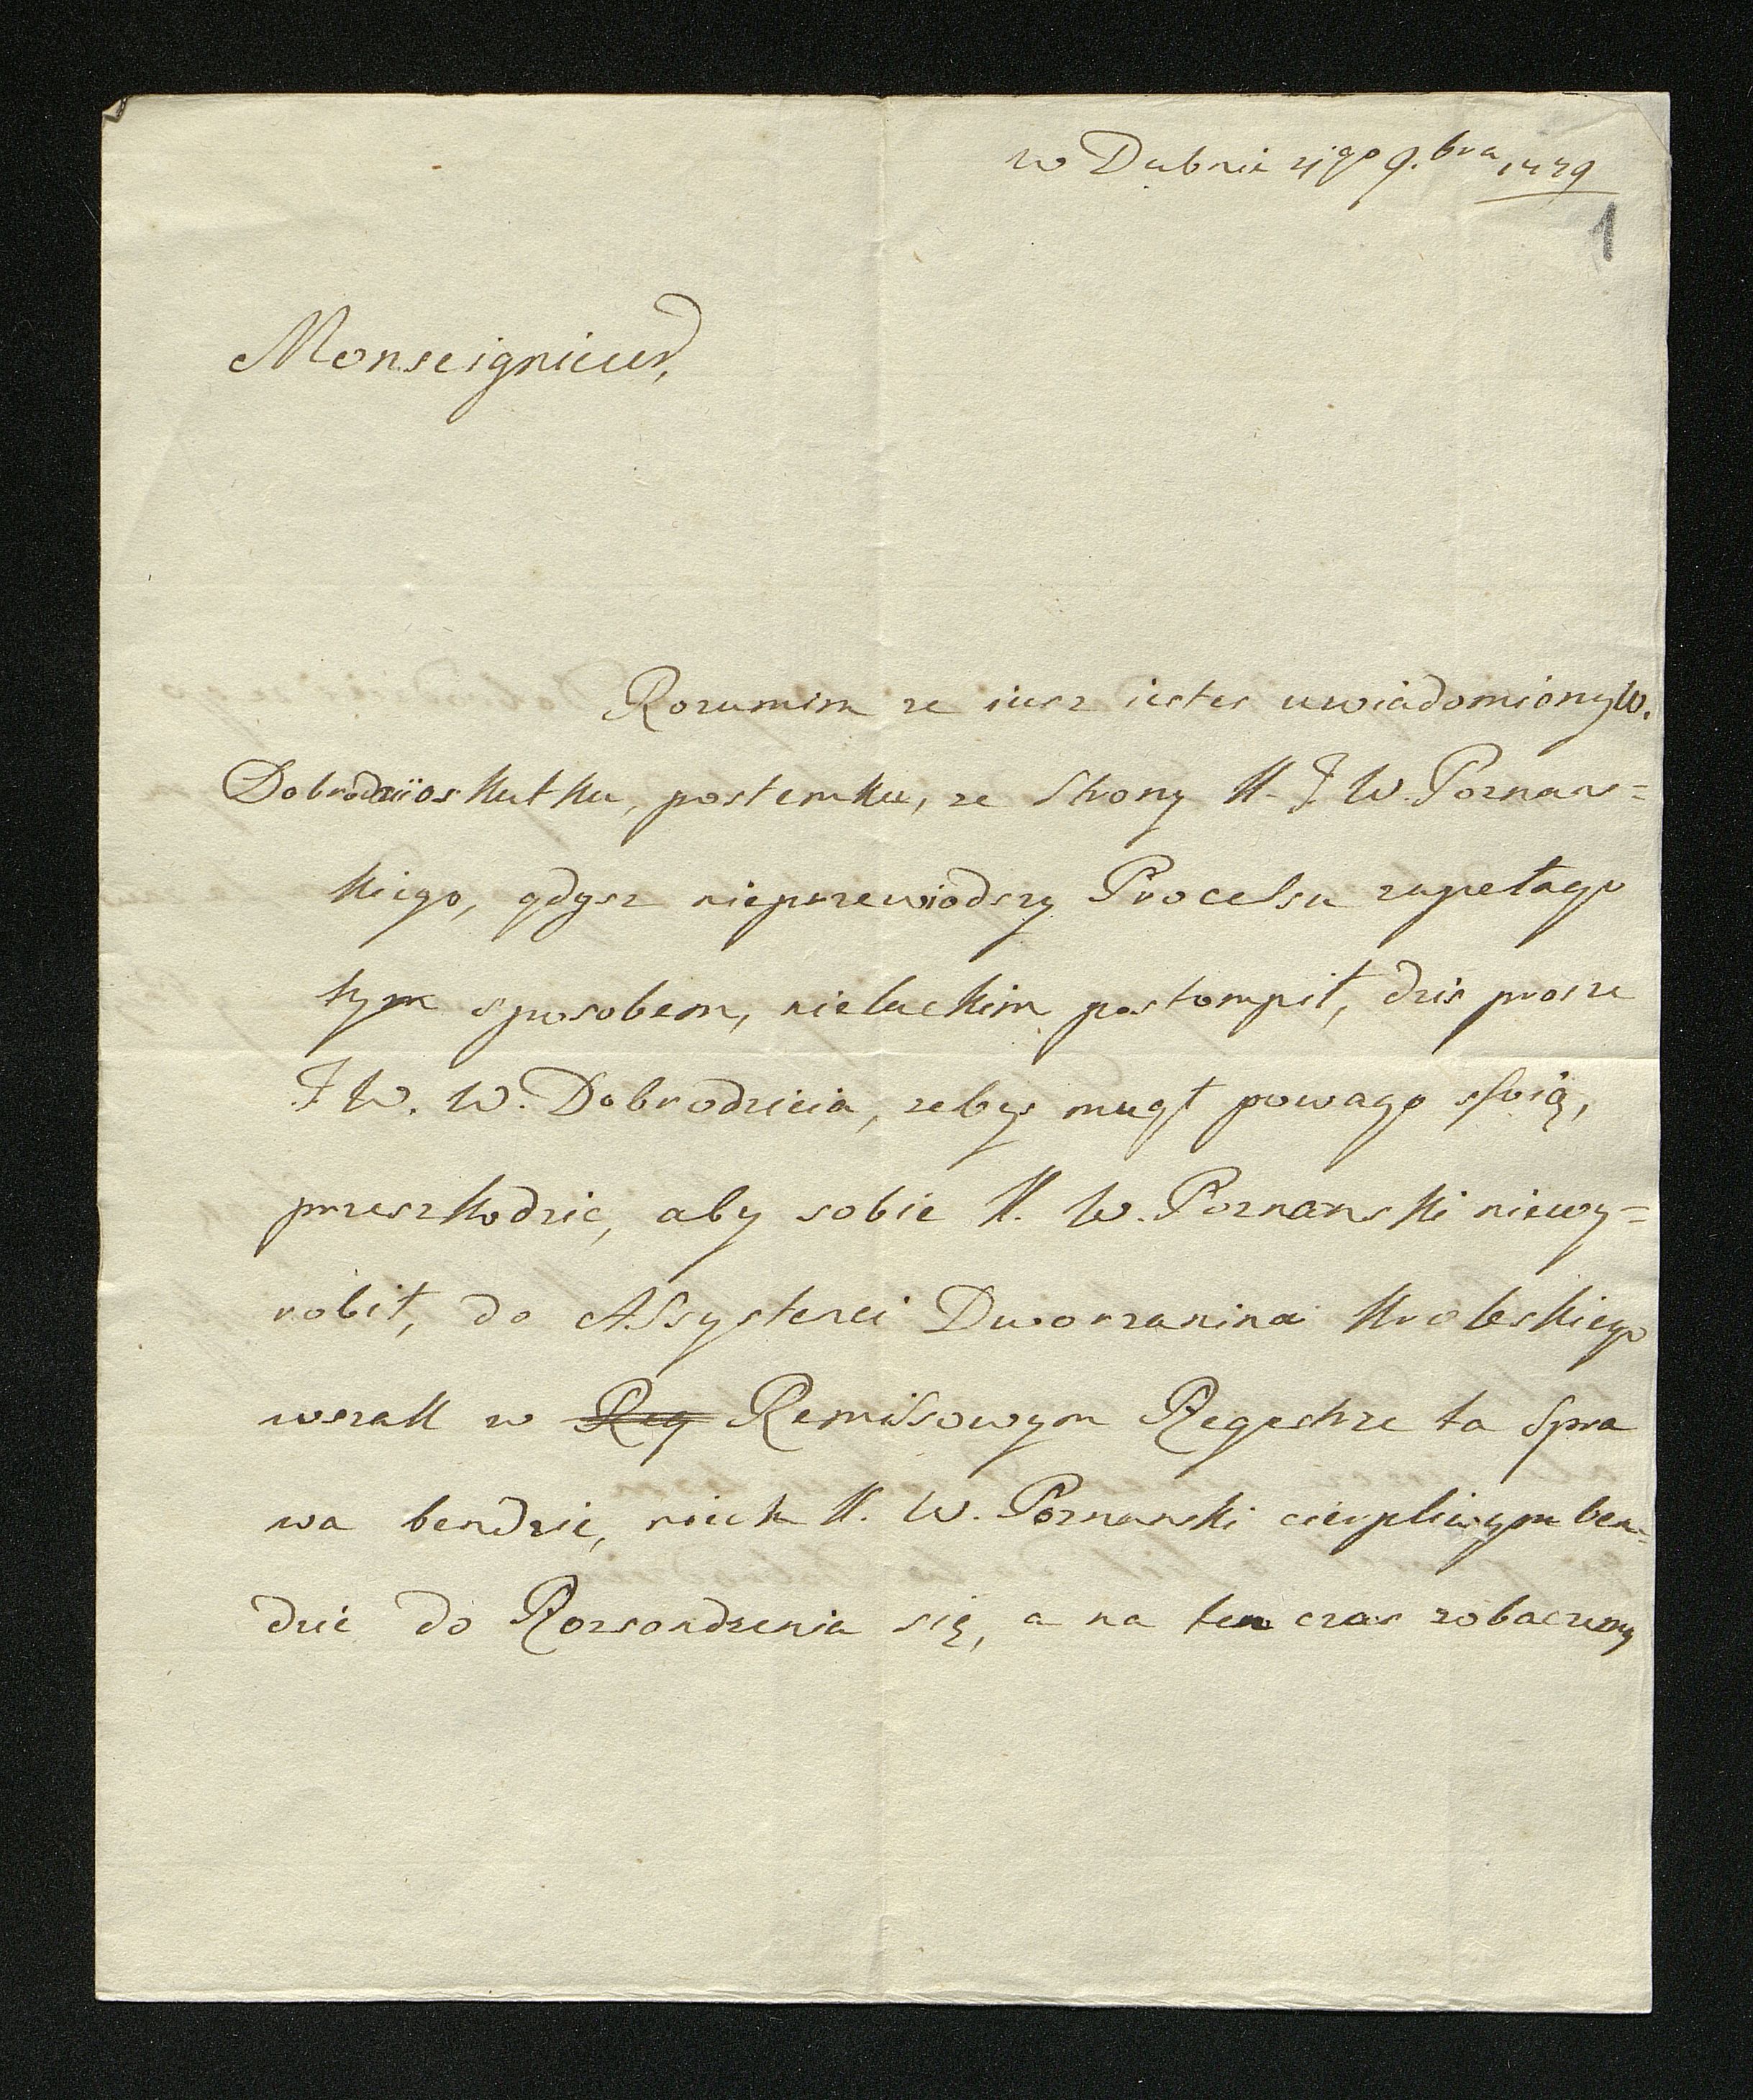 w Dubnie 4go 9.bra 1779
1
Monseignieur,
Rozumim ze iusz iestes uwiadomiony W.
Dobrodzii o skutku, postemku, ze strony K. J W. Poznans=
kiego, gdysz nieprzewiodszy Processu zupełago
tym sposobem, nieluckim postompił, dzis prosze
J W. W. Dobrodzieia, zebys mugł powago sfoią,
przeszkodzic, aby sobie K. W. Poznanski niewy=
robił, do Assystenci Dworzanina Kroleskiego
wszak w Reg Remissowym Regestrze ta Spra
wa bendzie, niech K. W. Poznanski cierpliwym ben=
dzie do Rozsondzenia się, a na ten czas zobaczemy